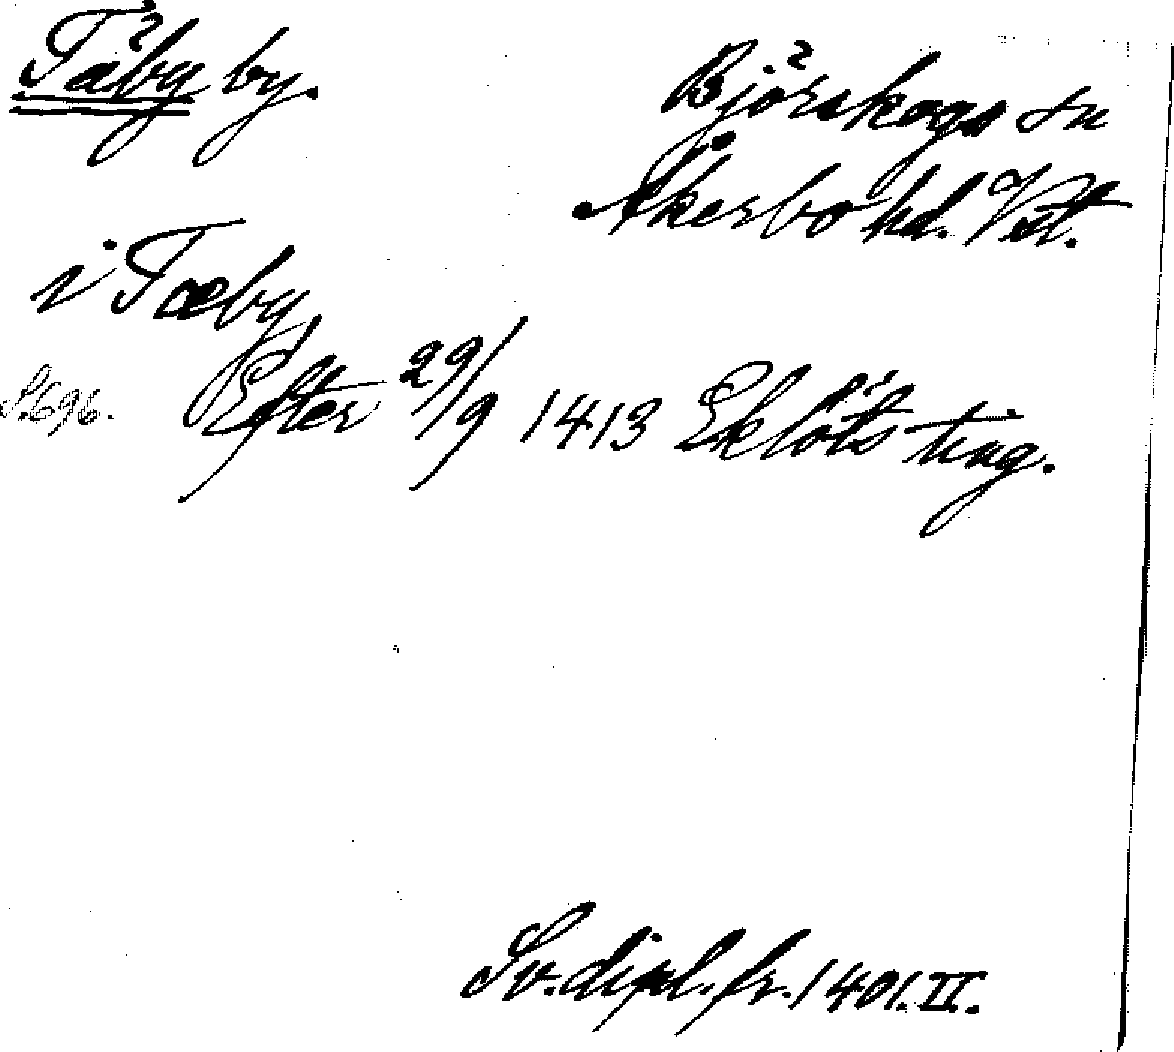 Täby by.
Björskogs sn
Åkerbo hd. Vstl.
i Tæby
S. 696. Efter 29/9 1413 Eklöts ting.
Sv. dipl. fr. 1401. II.